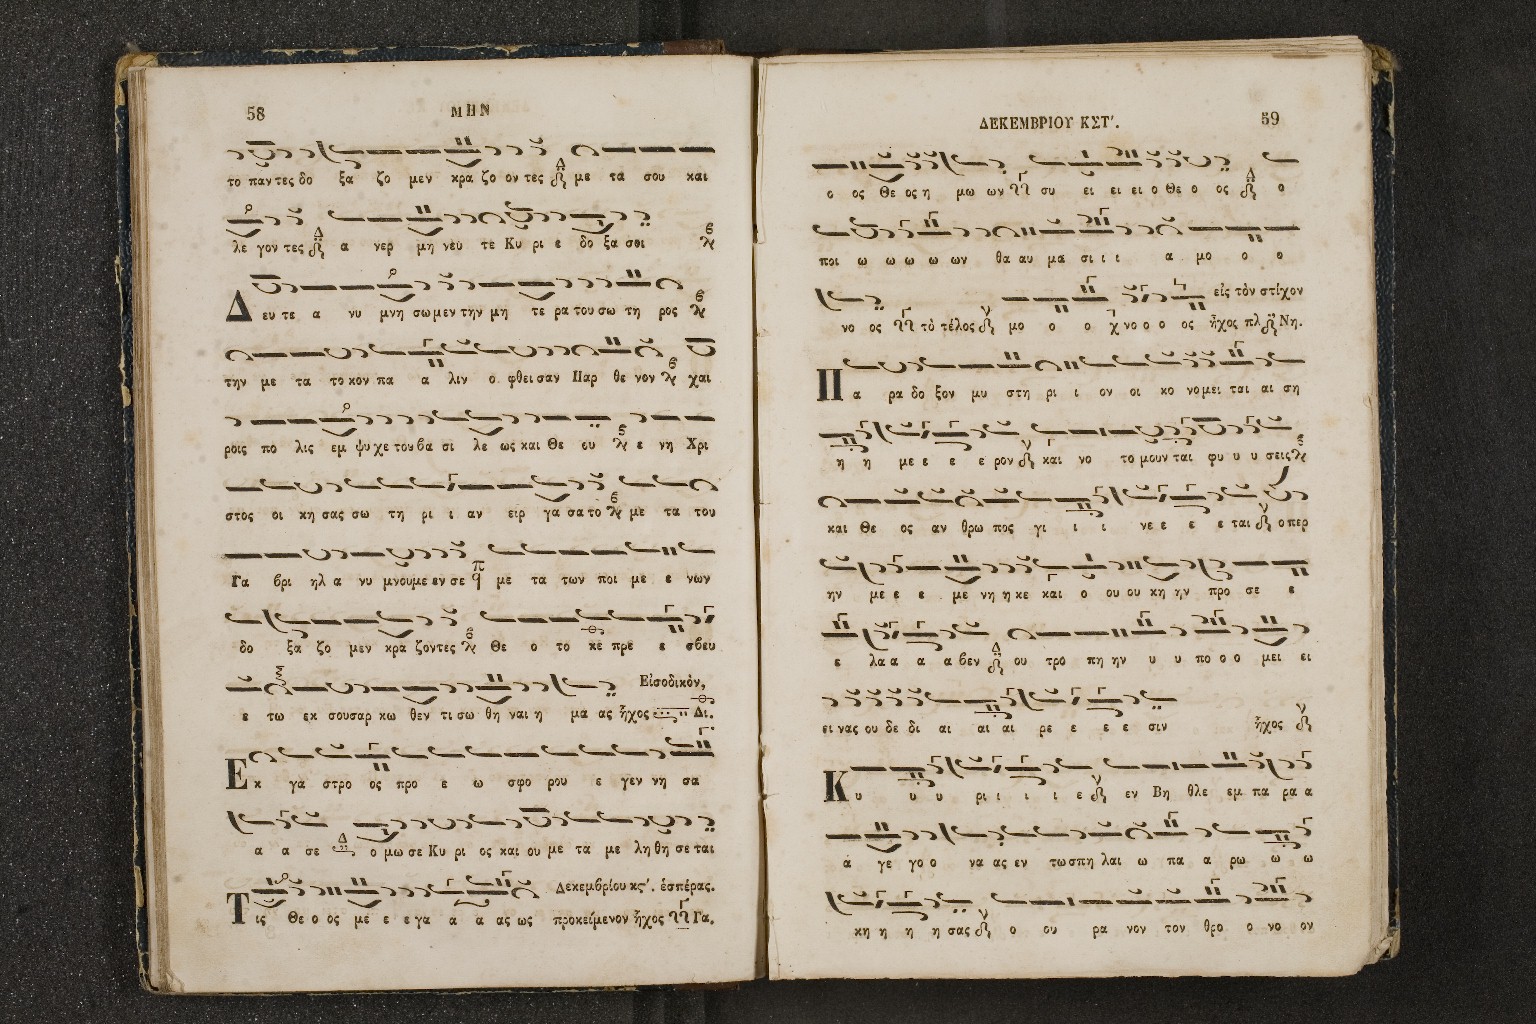 58
ΜΗΝ
το παν τες δο ξα ζο μεν κρα ζο ον τες με τα σου και
λε γον τες α νερ μη νευ τε Κυ ρι ε δο ξα σοι
Δ ευ τε α νυ μνη σω μεν την μη τε ρα του σω τη ρος
την με τα το κον πα α λιν ο φθει σαν Παρ θε νον χαι
ροις πο λις εμ ψυ χε του βα σι λε ως και Θε ου ε νη Χρι
στος οι κη σας σω τη ρι ι αν ειρ γα σα το με τα του
Γα βρι ηλ α νυ μνουμε εν σε με τα των ποι με ε νων
δο ξα ζο μεν κρα ζοντες Θε ο το κε πρε ε σβευ
ε τω εκ σου σαρ κω θεν τι σω θη ναι η μα ας ἦχος Δι.
Εἰσοδικὸν,
Ε κ γα στρο ος προ ε ω σφο ρου ε γεν νη σα
α α σε ο μω σε Κυ ρι ος και ου με τα με λη θη σε ται
Δεκεμβρίου κς'. ἑσπέρας.
Τ ις Θε ο ος με ε ε γα α α ας ως προκείμενον ἦχος Γα.
ΔΕΚΕΜΒΡΙΟΥ ΚΣΤ'.
59
ο ος Θε ος η μω ων συ ει ει ει ο Θε ο ος ο
ποι ω ω ω ω ων θα αυ μα σι ι ι α μο ο ο
εἰς τὸν στίχον
νο ος τὸ τέλος μο ο ο χ νο ο ο ος ἦχος πλ Νη.
Π α ρα δο ξον μυ στη ρι ι ον οι κο νο μει ται αι ση
η η με ε ε ε ρον και νο το μουν ται φυ υ υ σεις
και Θε ος αν θρω πος γι ι ι νε ε ε ε ται ο περ
ην με ε ε με νη η κε και ο ου ου κη ην προ σε ε
ε λα α α α βεν ου τρο πη ην υ υ πο ο ο μει ει
ει νας ου δε δι αι αι αι ρε ε ε ε σιν ἦχος
Κ υ υ υ ρι ι ι ι ε εν Βη θλε εμ πα ρα α
ά γε γο ο να ας εν τω σπη λαι ω πα α ρω ω ω
κη η η η σας ο ου ρα νον τον θρο ο νο ον